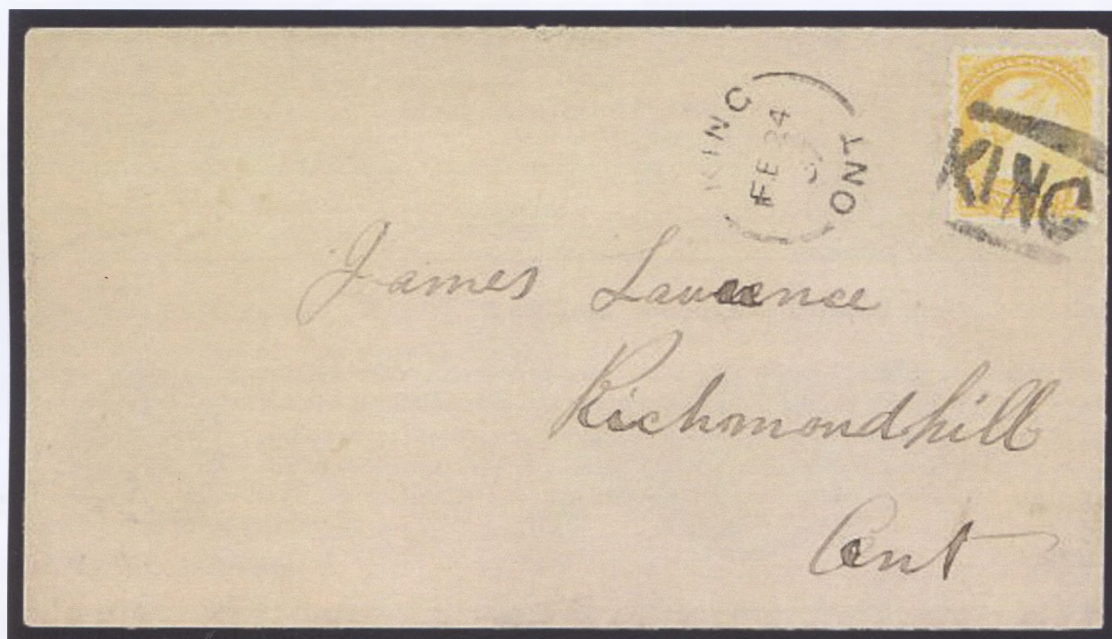 KING
FE 24
ONT
KING
James Lawrence
Richmondhill
Ont